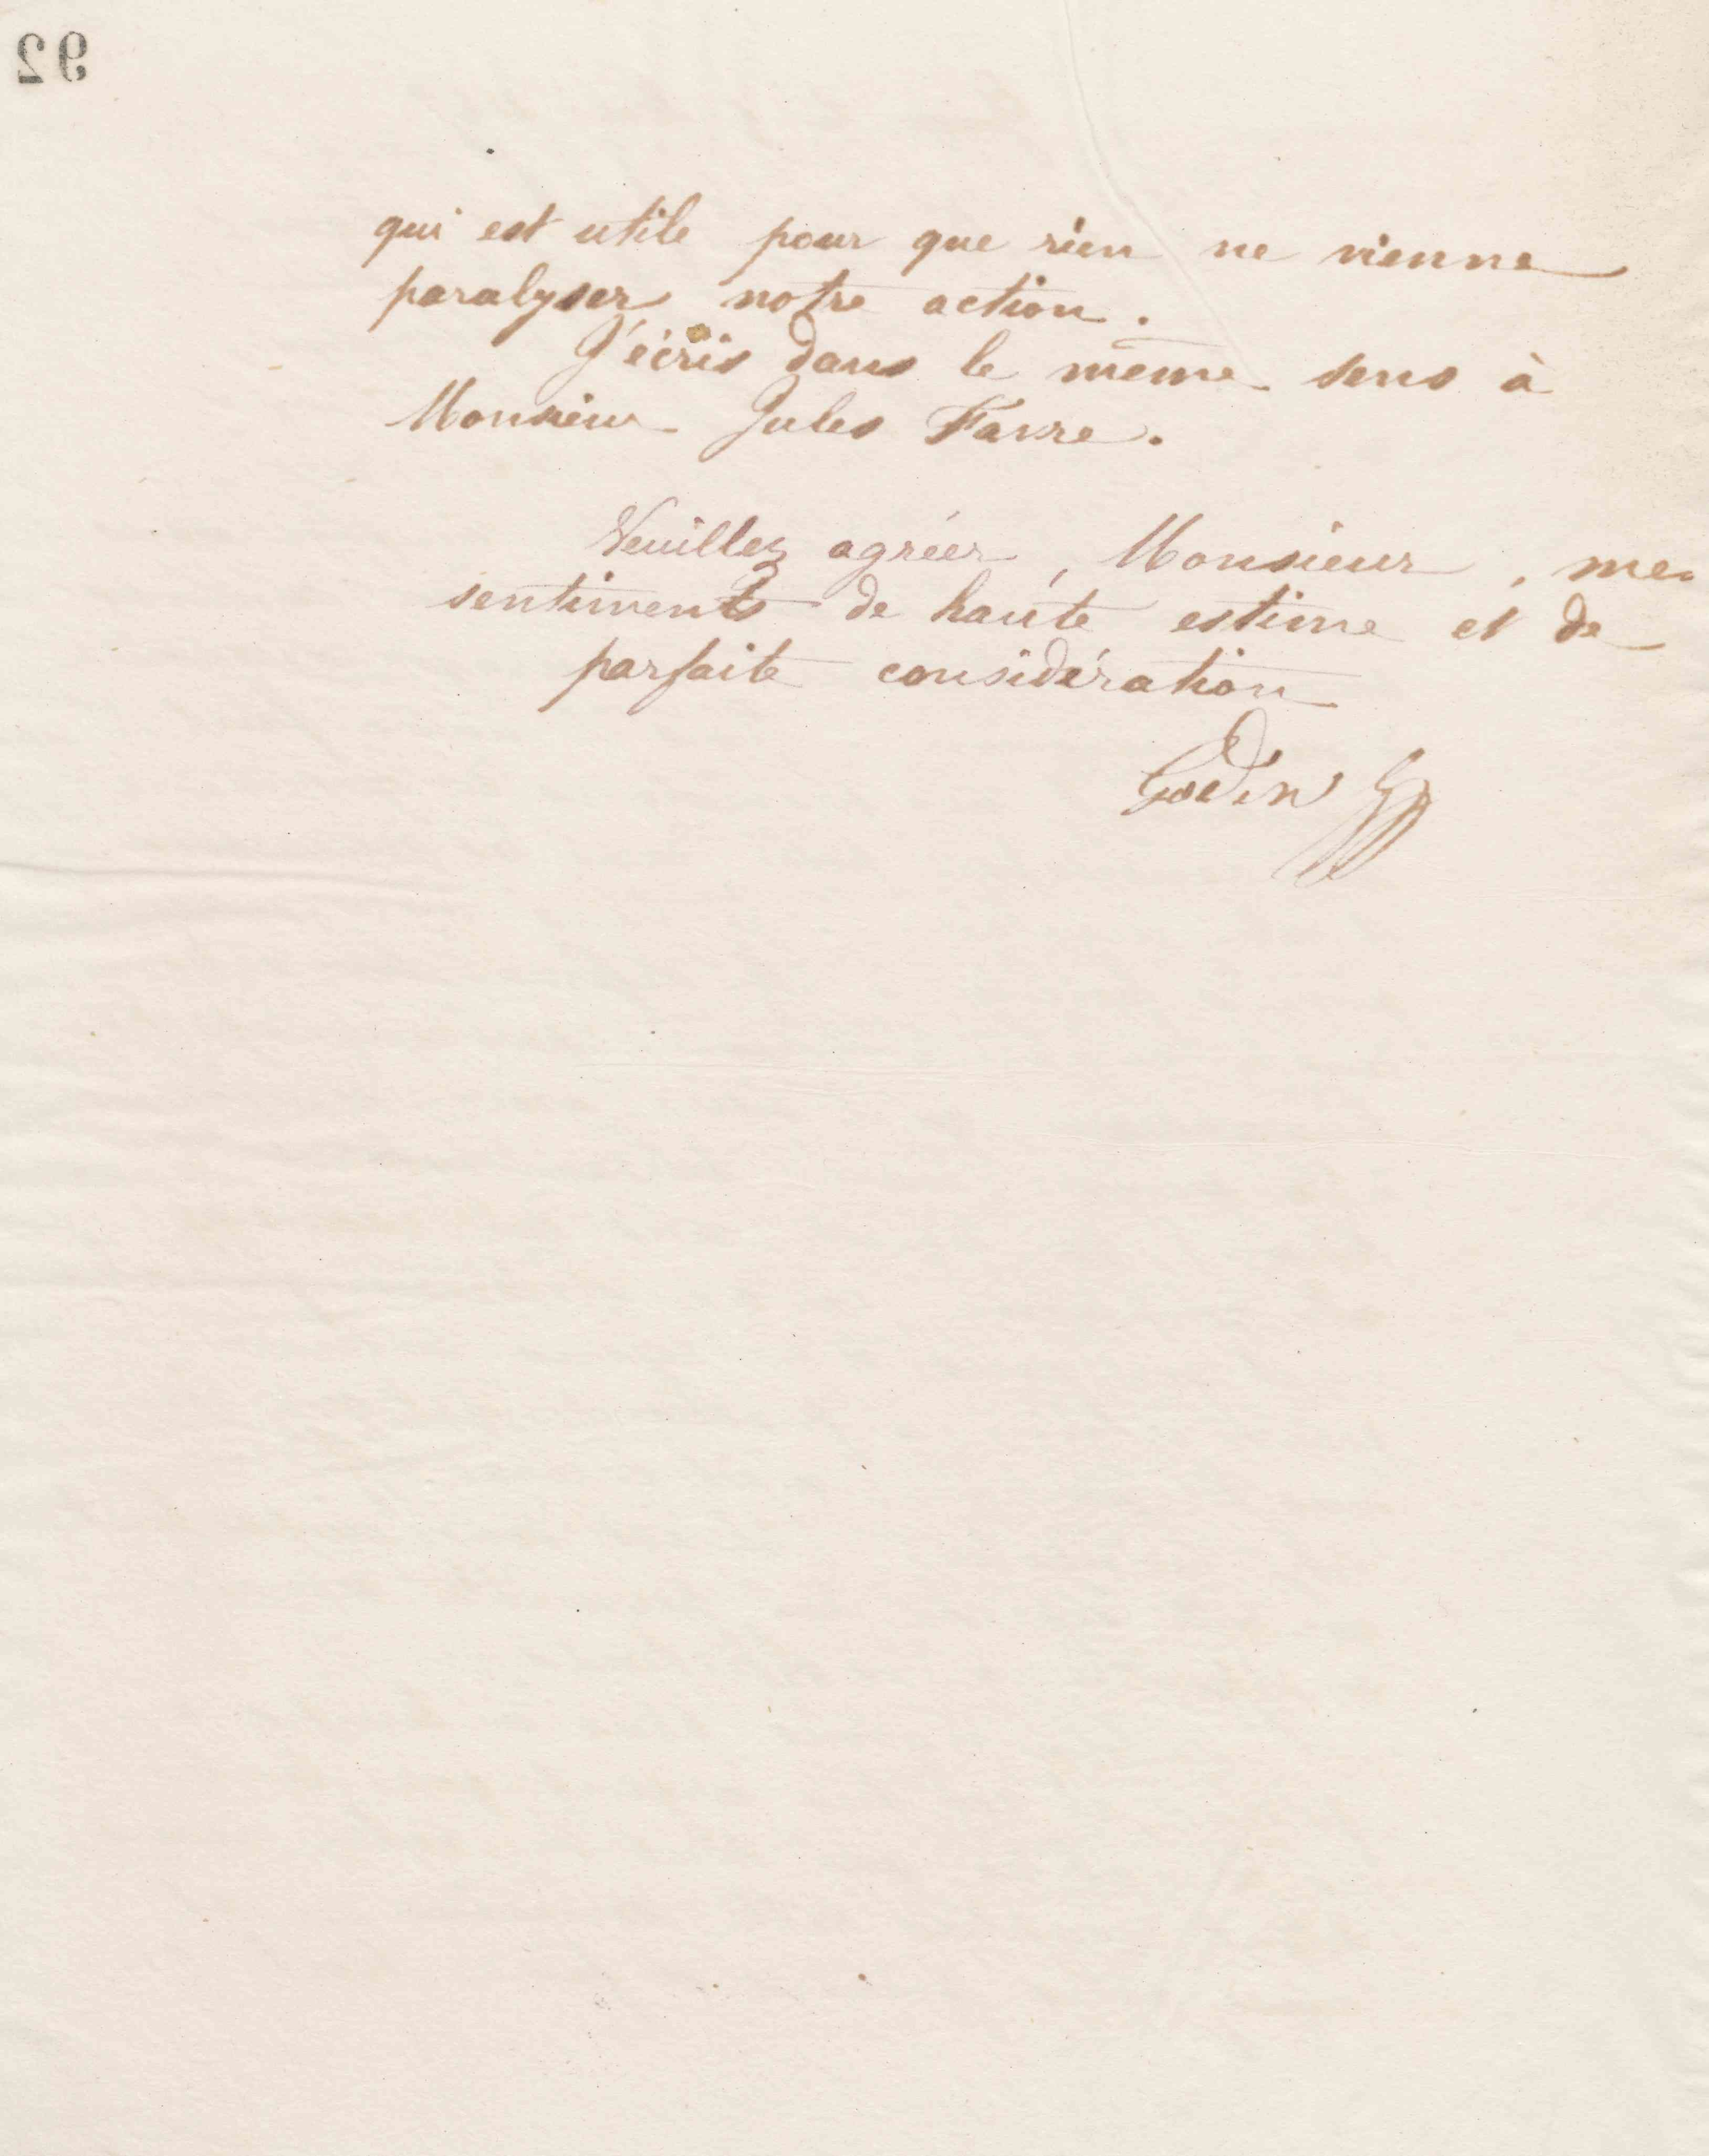 92
qui est utile pour que rien ne vienne
paralyser notre action.
J'écris dans le même sens à
Monsieur Jules Favre.
Veuillez agréer, Monsieur, mes
sentiments de haute estime et de
parfaite considération
Godin